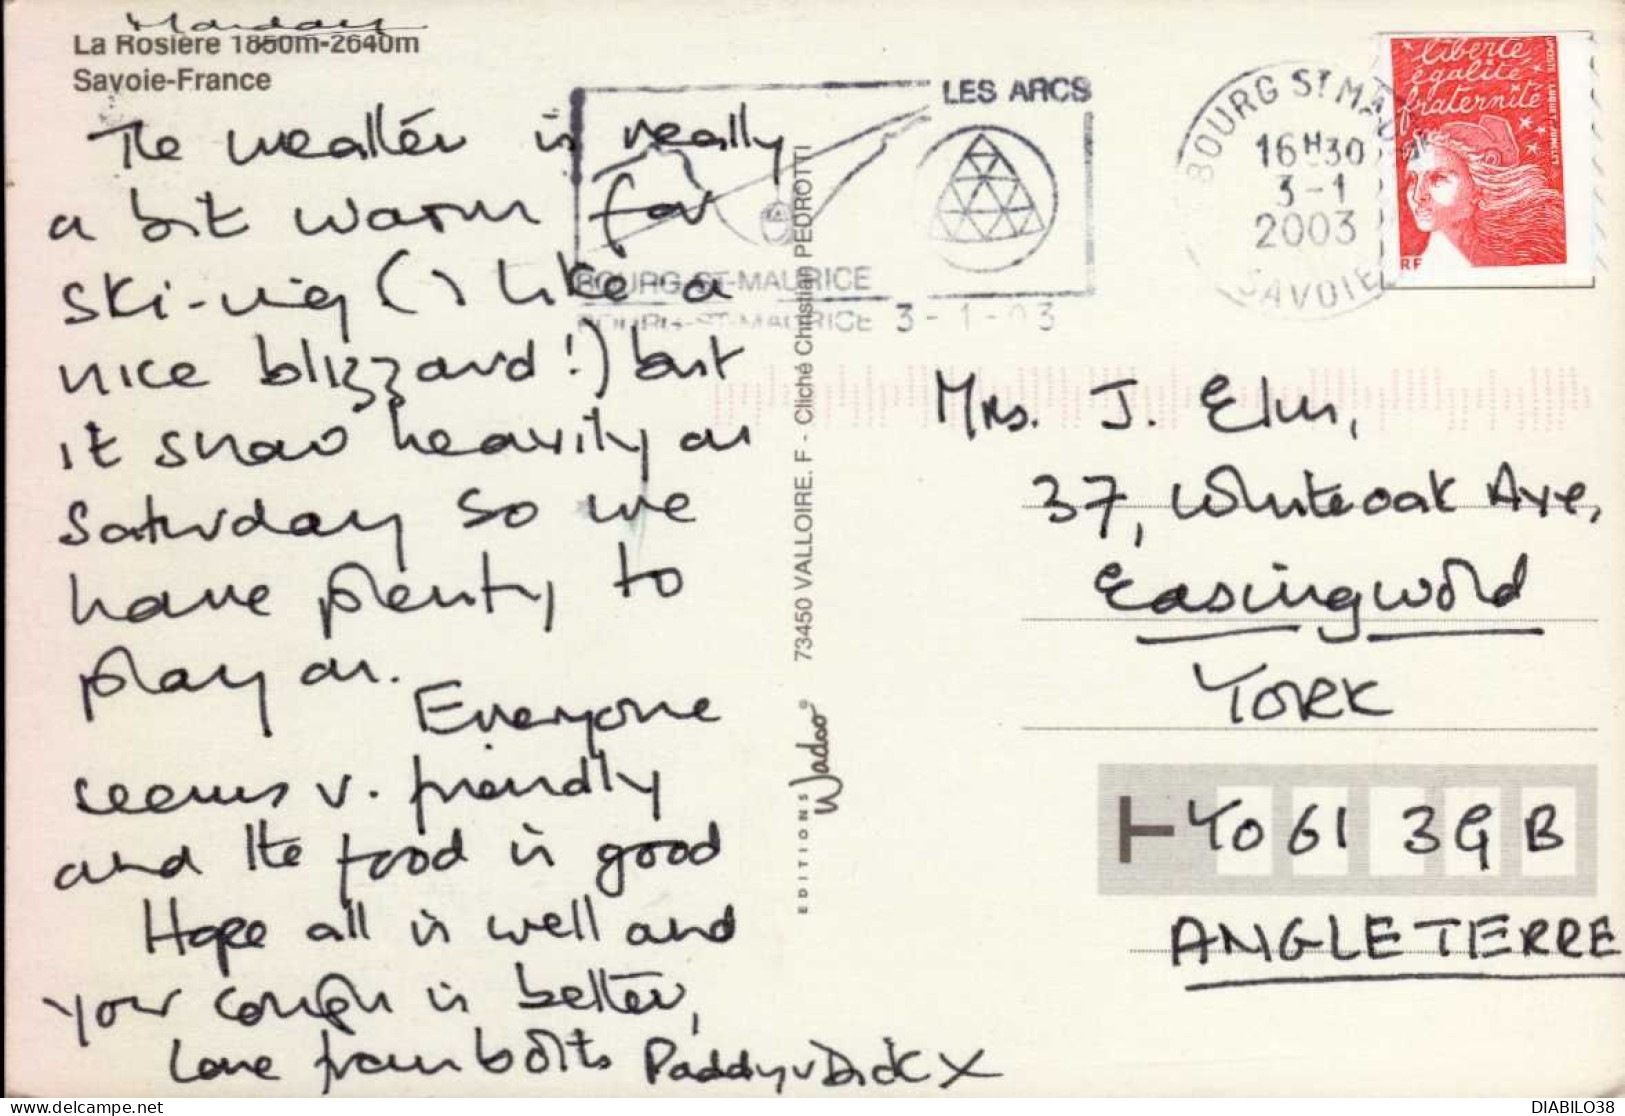 Monday
La Rosière 1850m-2640m
Savoie-France
The weather is really
a bit warm for
ski-ing (I like a
nice blizzard!) but
it snow heavily on
Saturday so we
have plenty to
play on.
Everyone
seems v. friendly
and the food is good
Hope all is well and
your cough is better,
Love from both
Paddy & Dick X
EDITIONS Wadoo® 73450 VALLOIRE. F - Cliché Christian PEDROTTI
LES ARCS
BOURG-ST-MAURICE
BOURG-ST-MAURICE 3-1-03
BOURG ST MAU
16H30
3-1
2003
SAVOIE
liberté
égalité
fraternité
RF
LA POSTE LUQUET-JUMELET
Mrs. J. Elm,
37, Whiteoak Ave,
Easingwold
YORK
YO61 3GB
ANGLETERRE
delcampe.net
DIABILO38